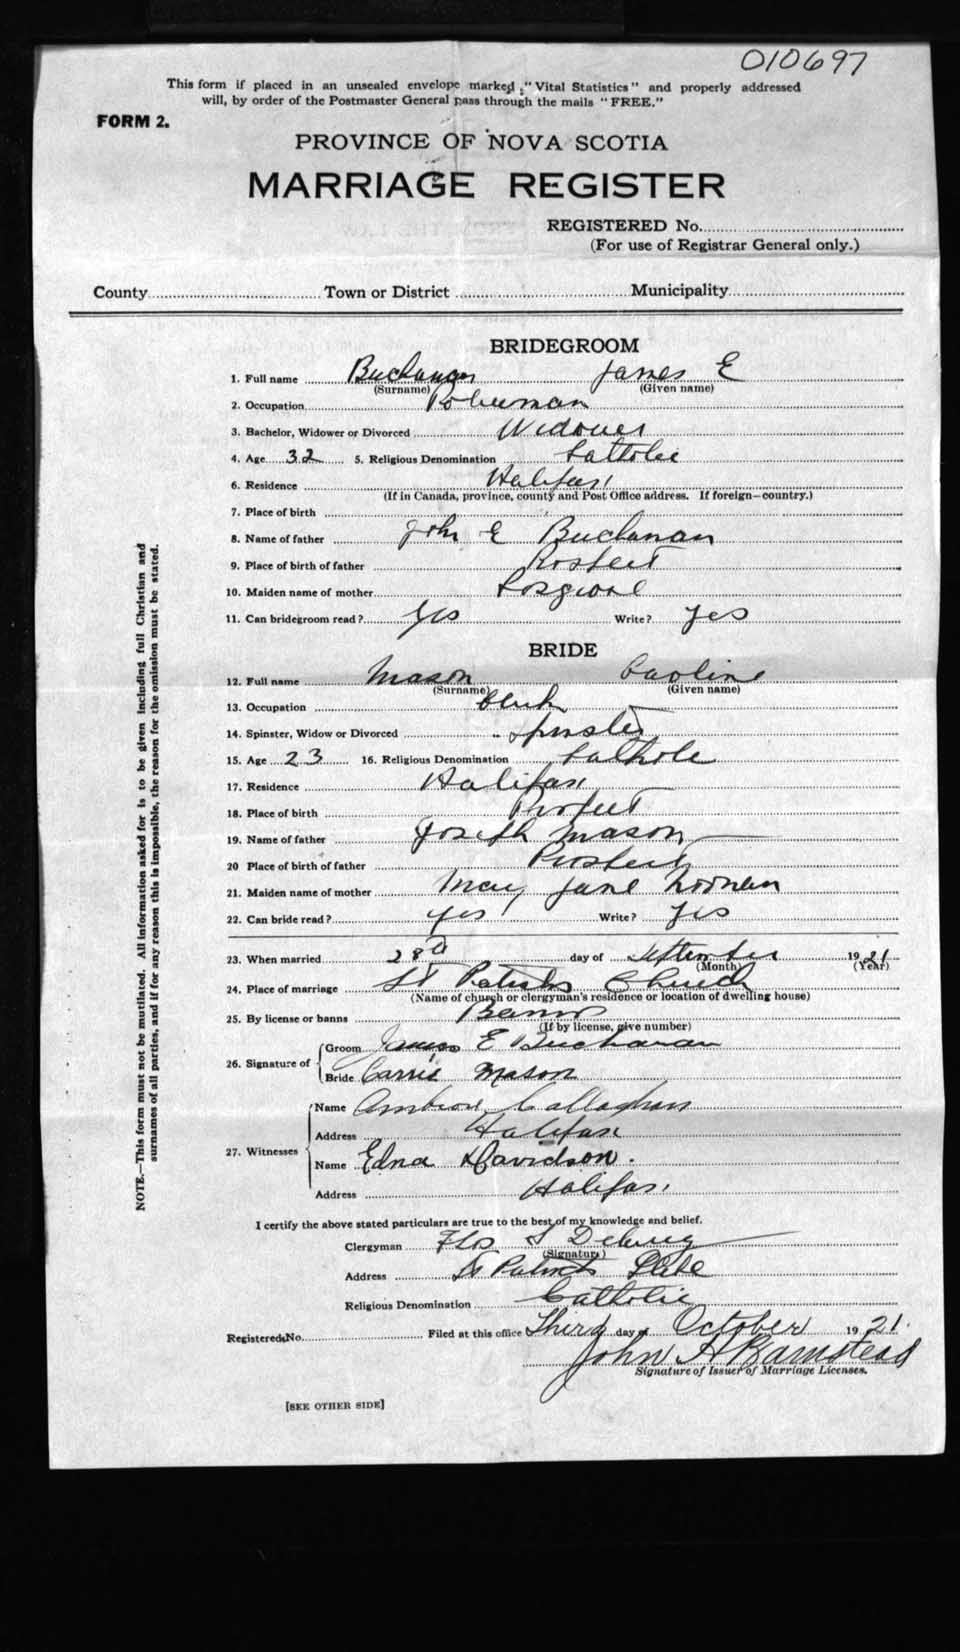 010697
This form if placed in an unsealed envelope marked, "Vital Statistics" and properly addressed
will, by order of the Postmaster General pass through the mails "FREE."
FORM 2.
PROVINCE OF NOVA SCOTIA
MARRIAGE REGISTER
REGISTERED No.
(For use of Registrar General only.)
County Town or District Municipality
BRIDEGROOM
1. Full name Buchanan James E
(Surname) (Given name)
2. Occupation Policeman
3. Bachelor, Widower or Divorced Widower
4. Age 32 5. Religious Denomination Catholic
6. Residence Halifax
(If in Canada, province, county and Post Office address. If foreign—country.)
7. Place of birth
8. Name of father John E Buchanan
9. Place of birth of father
10. Maiden name of mother
11. Can bridegroom read? Yes Write? Yes
BRIDE
12. Full name Mason Caroline
(Surname) (Given name)
13. Occupation Clerk
14. Spinster, Widow or Divorced Spinster
15. Age 23 16. Religious Denomination Catholic
17. Residence Halifax
18. Place of birth Prospect
19. Name of father Joseph Mason
20 Place of birth of father Prospect
21. Maiden name of mother Mary Jane Noonan
22. Can bride read? yes Write? Yes
23. When married 28th day of September 1921
(Month) (Year)
24. Place of marriage St Patricks Church
(Name of church or clergyman's residence or location of dwelling house)
25. By license or banns Banns
(If by license, give number)
26. Signature of Groom James E Buchanan
Bride Carrie Mason
27. Witnesses Name Ambrose Callaghan
Address Halifax
Name Edna Davidson.
Address Halifax
I certify the above stated particulars are true to the best of my knowledge and belief.
Clergyman
(Signature)
Address St Patricks Glebe
Religious Denomination Catholic
Registered No. Filed at this office Third day of October 1921.
John A Barnstead
Signature of Issuer of Marriage Licenses.
[SEE OTHER SIDE]
NOTE.—This form must not be mutilated. All information asked for is to be given including full Christian and
surnames of all parties, and if for any reason this is impossible, the reason for the omission must be stated.